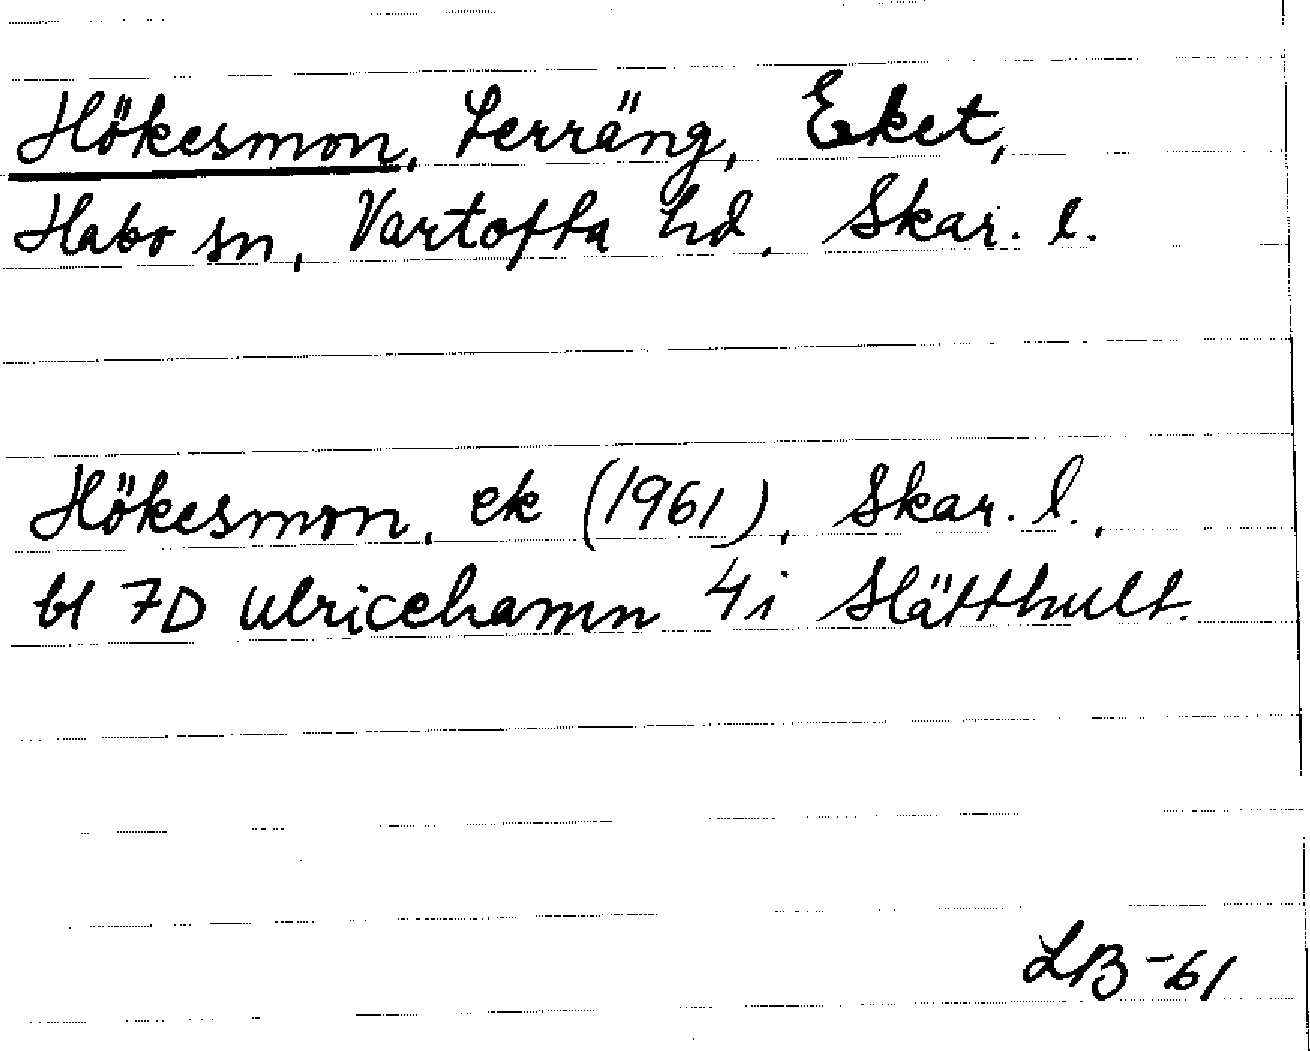 Hökesmon, terräng, Eket,
Habo sn, Vartofta hd, Skar. l.
Hökesmon, ek (1961), Skar. l.,
bl 7D Ulricehamn 4i Slätthult.
LB-61